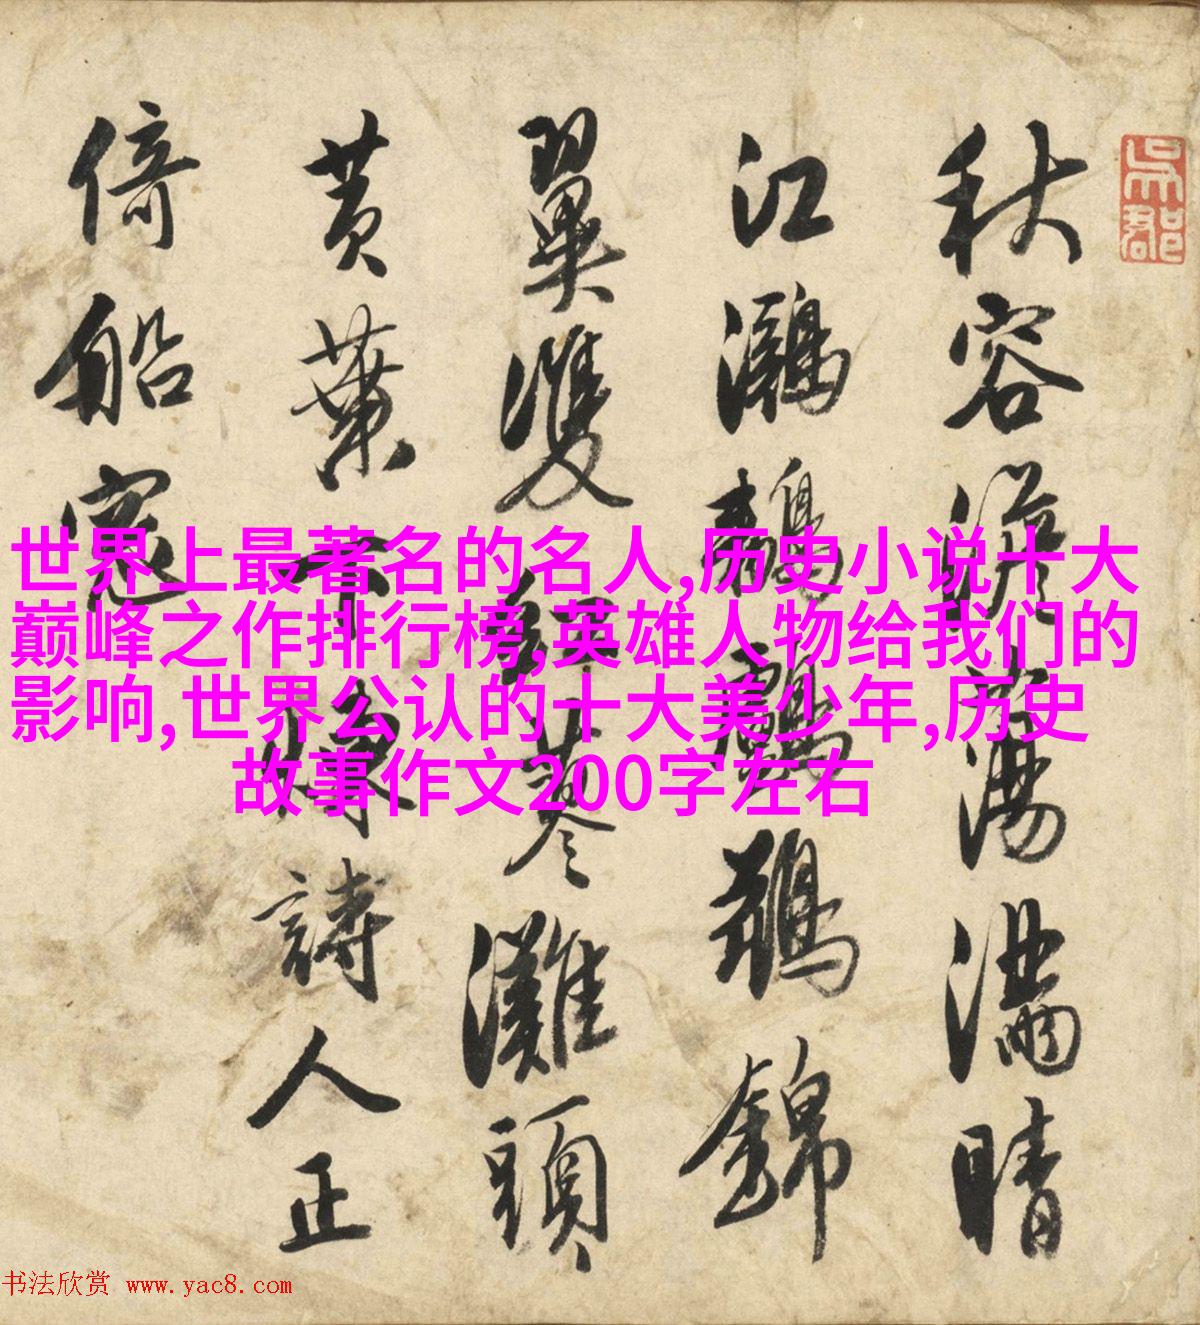 吳郡
秋容澹蕩滿晴
江鸂鶒鸕鶿錦
翼雙蓼灘頭
黃葉詩人正
倚船窓
世界上最著名的名人,历史小说十大
巅峰之作排行榜,英雄人物给我们的
影响,世界公认的十大美少年,历史
故事作文200字左右
书法欣赏 www.yac8.com